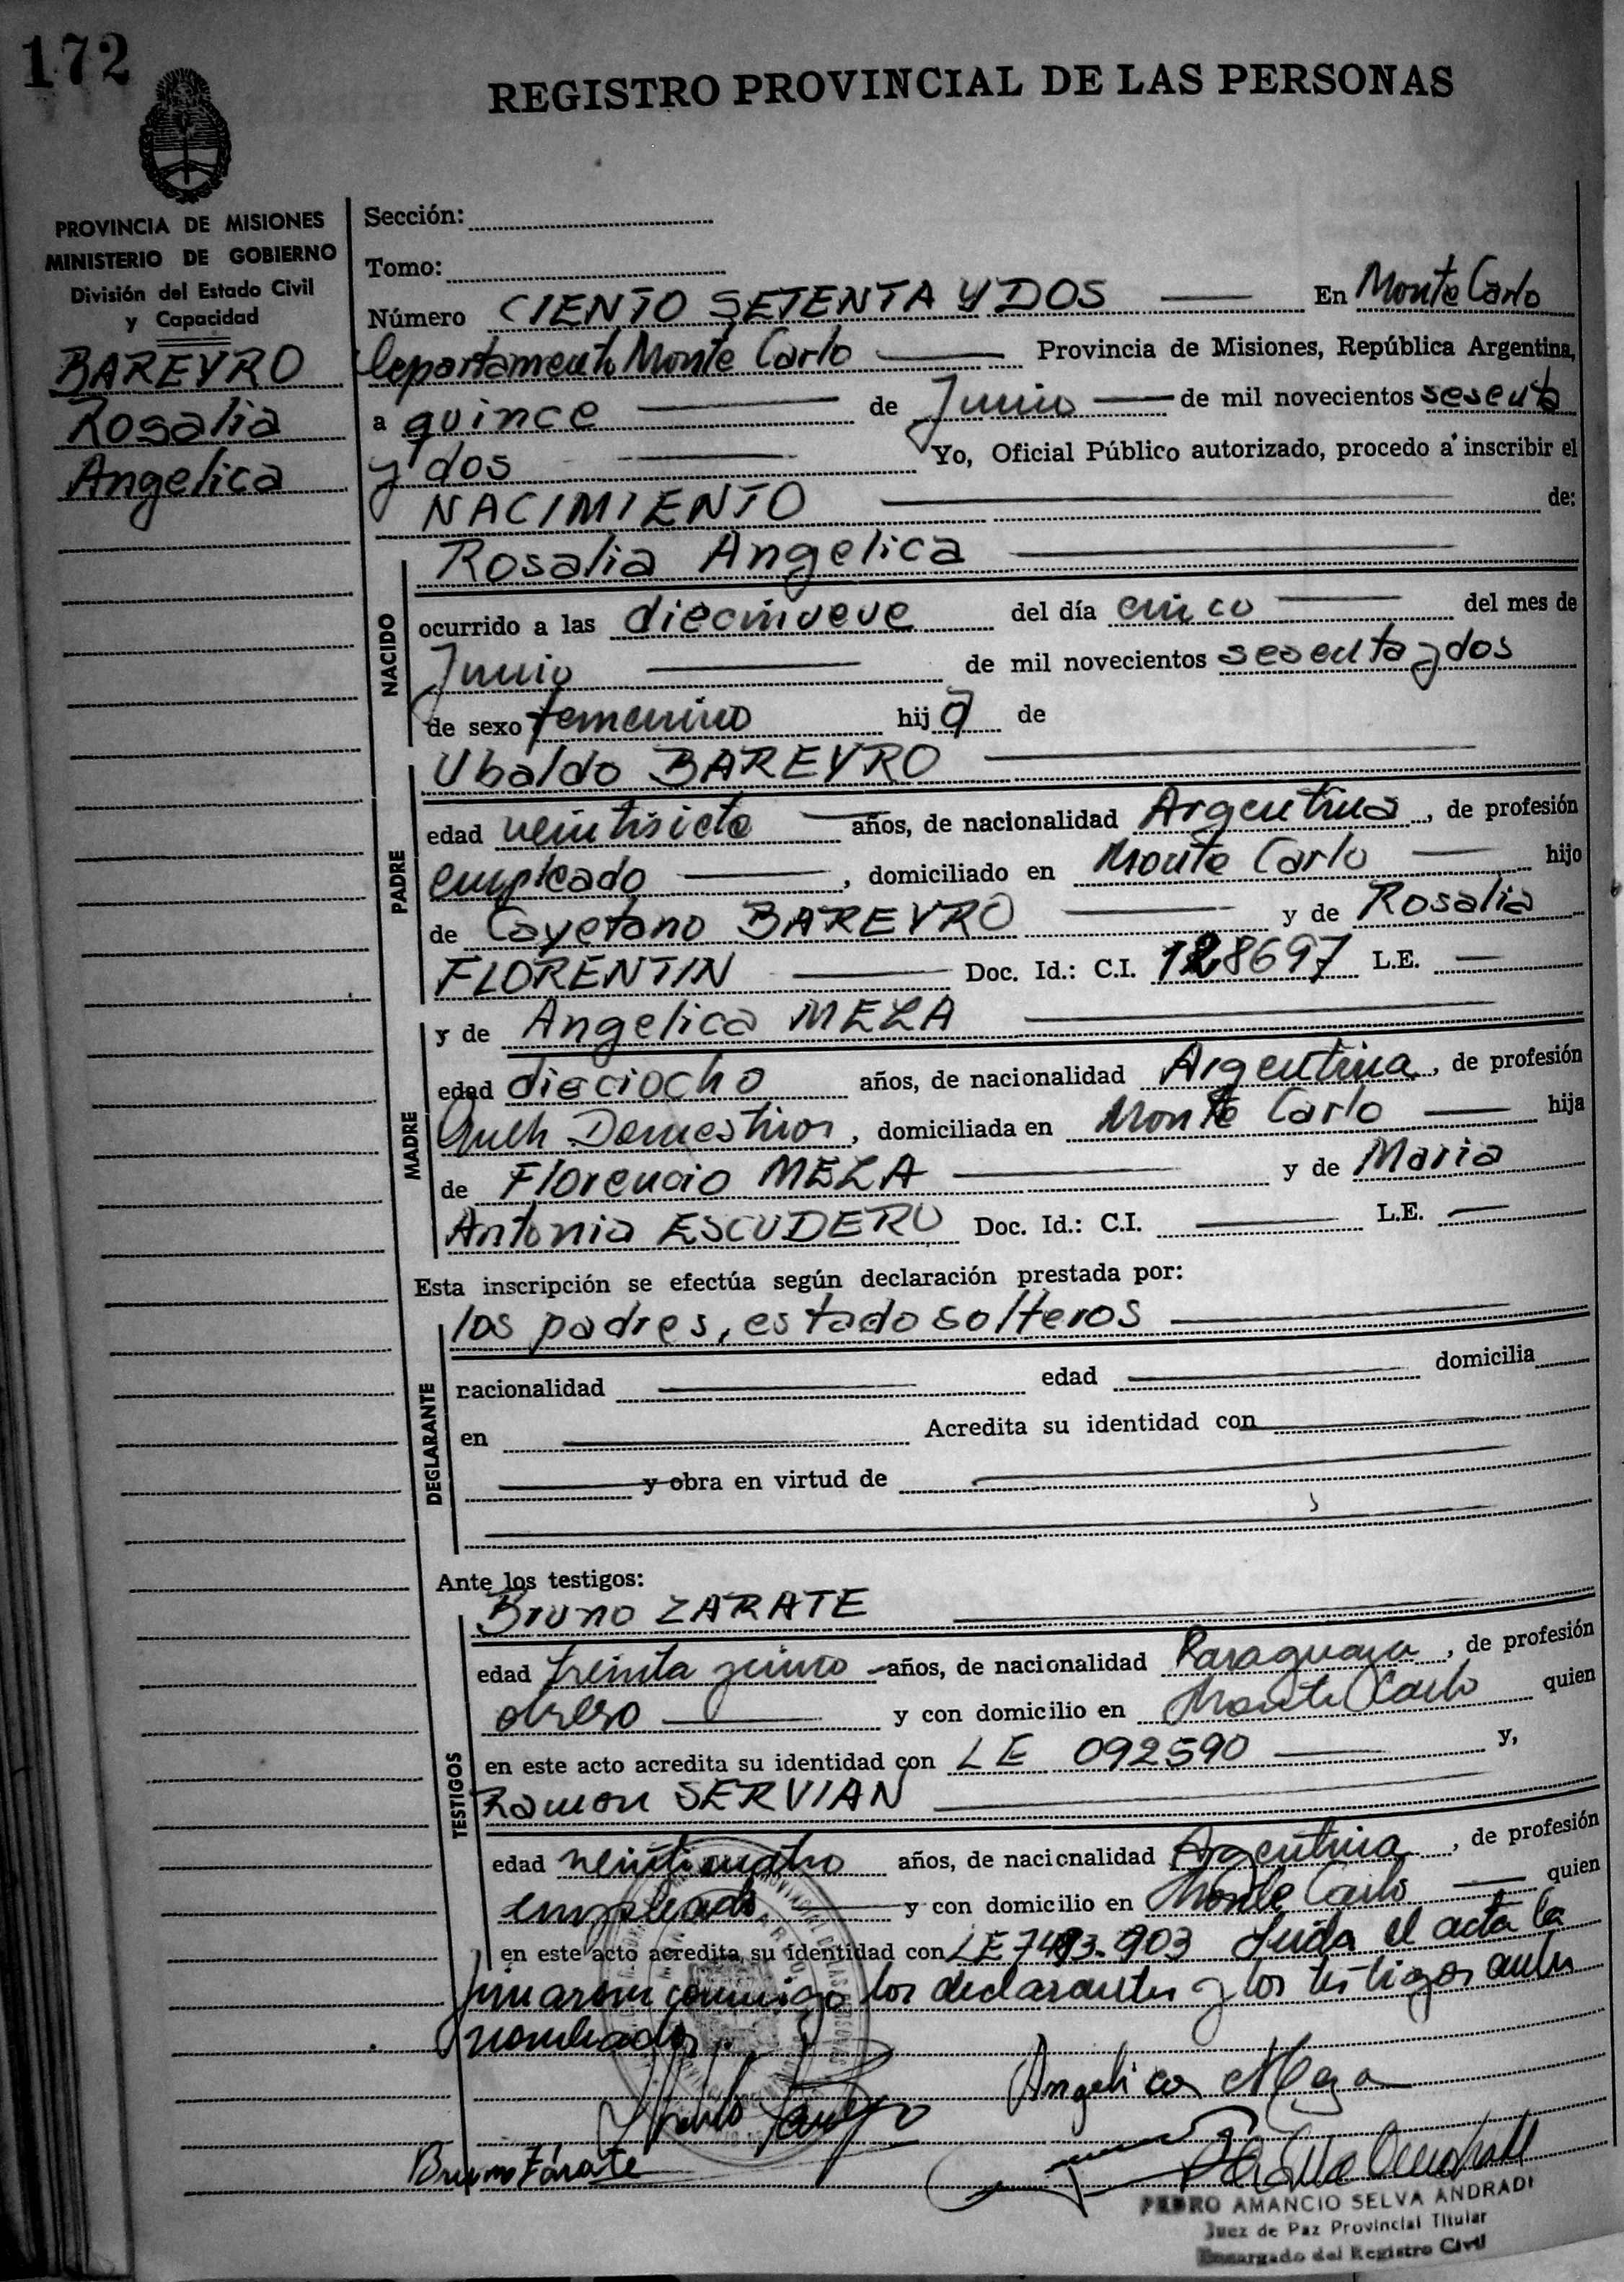 172
REGISTRO PROVINCIAL DE LAS PERSONAS
PROVINCIA DE MISIONES
MINISTERIO DE GOBIERNO
División del Estado Civil
y Capacidad
BAREYRO
Rosalia
Angelica
Sección:
Tomo:
Número CIENTO SETENTA Y DOS En Monte Carlo
Departamento Monte Carlo Provincia de Misiones, República Argentina,
a quince de Junio de mil novecientos sesenta
y dos Yo, Oficial Público autorizado, procedo a inscribir el
NACIMIENTO de:
NACIDO
Rosalia Angelica
ocurrido a las diecinueve del día cinco del mes de
Junio de mil novecientos sesenta y dos
de sexo femenino hija de
PADRE
Ubaldo BAREYRO
edad veintisiete años, de nacionalidad Argentina, de profesión
empleado, domiciliado en Monte Carlo hijo
de Cayetano BAREYRO y de Rosalia
FLORENTIN Doc. Id.: C.I. 128697 L.E.
MADRE
y de Angelica MEZA
edad dieciocho años, de nacionalidad Argentina, de profesión
Domesticos, domiciliada en Monte Carlo hija
de Florencio MEZA y de Maria
Antonia ESCUDERO Doc. Id.: C.I. L.E.
Esta inscripción se efectúa según declaración prestada por:
DECLARANTE
los padres, estado solteros
nacionalidad edad domicilia
en Acredita su identidad con
y obra en virtud de
Ante los testigos:
TESTIGOS
Bruno ZARATE
edad treinta y cinco años, de nacionalidad Paraguaya, de profesión
obrero y con domicilio en Monte Carlo quien
en este acto acredita su identidad con LE 092590 y,
Ramon SERVIAN
edad veinticuatro años, de nacionalidad Argentina, de profesión
empleado y con domicilio en Monte Carlo quien
en este acto acredita su identidad con LE 7493.903 Leida el acta la
firmaron conmigo los declarantes y los testigos antes
nombrados.
Angelica Meza
Bruno Zárate
PEDRO AMANCIO SELVA ANDRADE
Juez de Paz Provincial Titular
Encargado del Registro Civil